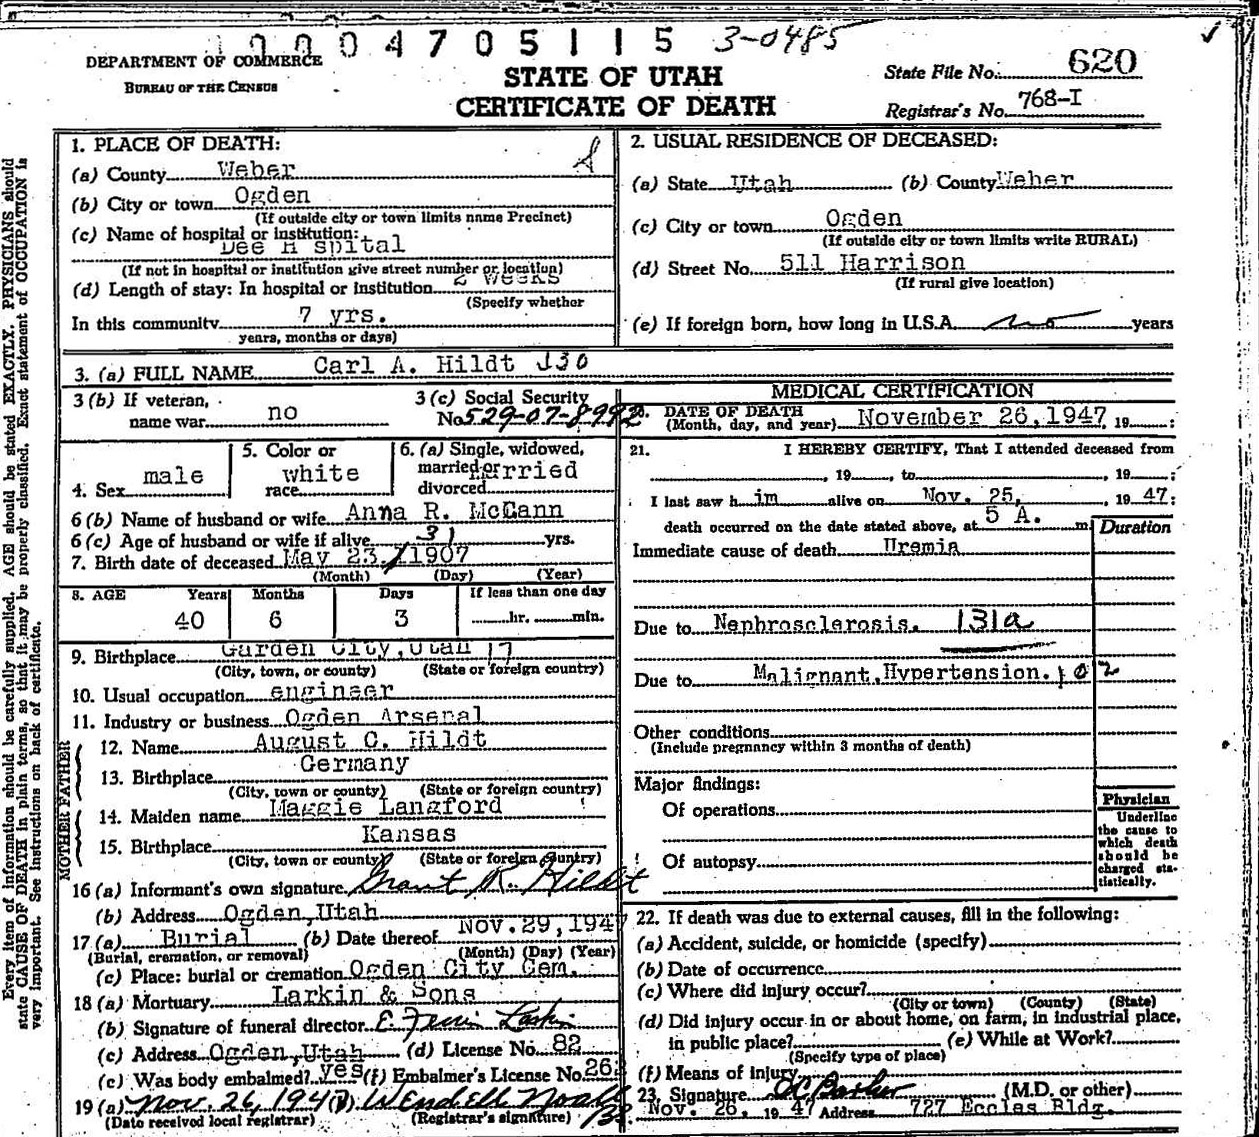 0004705115 3-0485
DEPARTMENT OF COMMERCE
BUREAU OF THE CENSUS
STATE OF UTAH
CERTIFICATE OF DEATH
State File No. 620
Registrar's No. 768-I
Every item of information should be carefully supplied. AGE should be stated EXACTLY. PHYSICIANS should
state CAUSE OF DEATH in plain terms, so that it may be properly classified. Exact statement of OCCUPATION is
very important. See instructions on back of certificate.
1. PLACE OF DEATH:
(a) County Weber
(b) City or town Ogden
(If outside city or town limits name Precinct)
(c) Name of hospital or institution:
Dee H spital
(If not in hospital or institution give street number or location)
(d) Length of stay: In hospital or Institution 2 weeks
(Specify whether
In this community 7 yrs.
years, months or days)
2. USUAL RESIDENCE OF DECEASED:
(a) State Utah (b) County Weber
(c) City or town Ogden
(If outside city or town limits write RURAL)
(d) Street No. 511 Harrison
(If rural give location)
(e) If foreign born, how long in U.S.A. no years
3. (a) FULL NAME Carl A. Hildt 530
3 (b) If veteran, name war no
3 (c) Social Security
No. 529-07-8992
4. Sex male
5. Color or race white
6. (a) Single, widowed, married or divorced rried
6 (b) Name of husband or wife Anna R. McCann
6 (c) Age of husband or wife if alive 31 yrs.
7. Birth date of deceased May 23, 1907
(Month) (Day) (Year)
8. AGE Years Months Days If less than one day
40 6 3 hr. min.
9. Birthplace Garden City, Utah 17
(City, town, or county) (State or foreign country)
10. Usual occupation engineer
11. Industry or business Ogden Arsenal
FATHER
12. Name August C. Hildt
13. Birthplace Germany
(City, town or county) (State or foreign country)
MOTHER
14. Maiden name Maggie Langford
15. Birthplace Kansas
(City, town or county) (State or foreign country)
16 (a) Informant's own signature Grant R. Hildt
(b) Address Ogden, Utah
17 (a) Burial (b) Date thereof Nov. 29, 1947
(Burial, cremation, or removal) (Month) (Day) (Year)
(c) Place: burial or cremation Ogden City Cem.
18 (a) Mortuary Larkin & Sons
(b) Signature of funeral director E. Larkin
(c) Address Ogden, Utah (d) License No. 82
(e) Was body embalmed? yes (f) Embalmer's License No. 26
19 (a) Nov. 26, 194 (b) Wendell
(Date received local registrar) (Registrar's signature)
MEDICAL CERTIFICATION
20. DATE OF DEATH
(Month, day, and year) November 26, 1947, 19 :
21. I HEREBY CERTIFY, That I attended deceased from
, 19 , to , 19 ;
I last saw h im alive on Nov. 25, , 19 47;
death occurred on the date stated above, at 5 A. m
Duration
Immediate cause of death Uremia
Due to Nephrosclerosis. 131a
Due to Malignant Hypertension. 102
Other conditions
(Include pregnancy within 3 months of death)
Major findings:
Of operations
Of autopsy
Physician
Underline
the cause to
which death
should be
charged sta-
tistically.
22. If death was due to external causes, fill in the following:
(a) Accident, suicide, or homicide (specify)
(b) Date of occurrence
(c) Where did injury occur?
(City or town) (County) (State)
(d) Did injury occur in or about home, on farm, in industrial place,
in public place? (e) While at Work?
(Specify type of place)
(f) Means of injury
23. Signature (M.D. or other)
Nov. 26, 19 47 Address 727 Eccles Bldg.